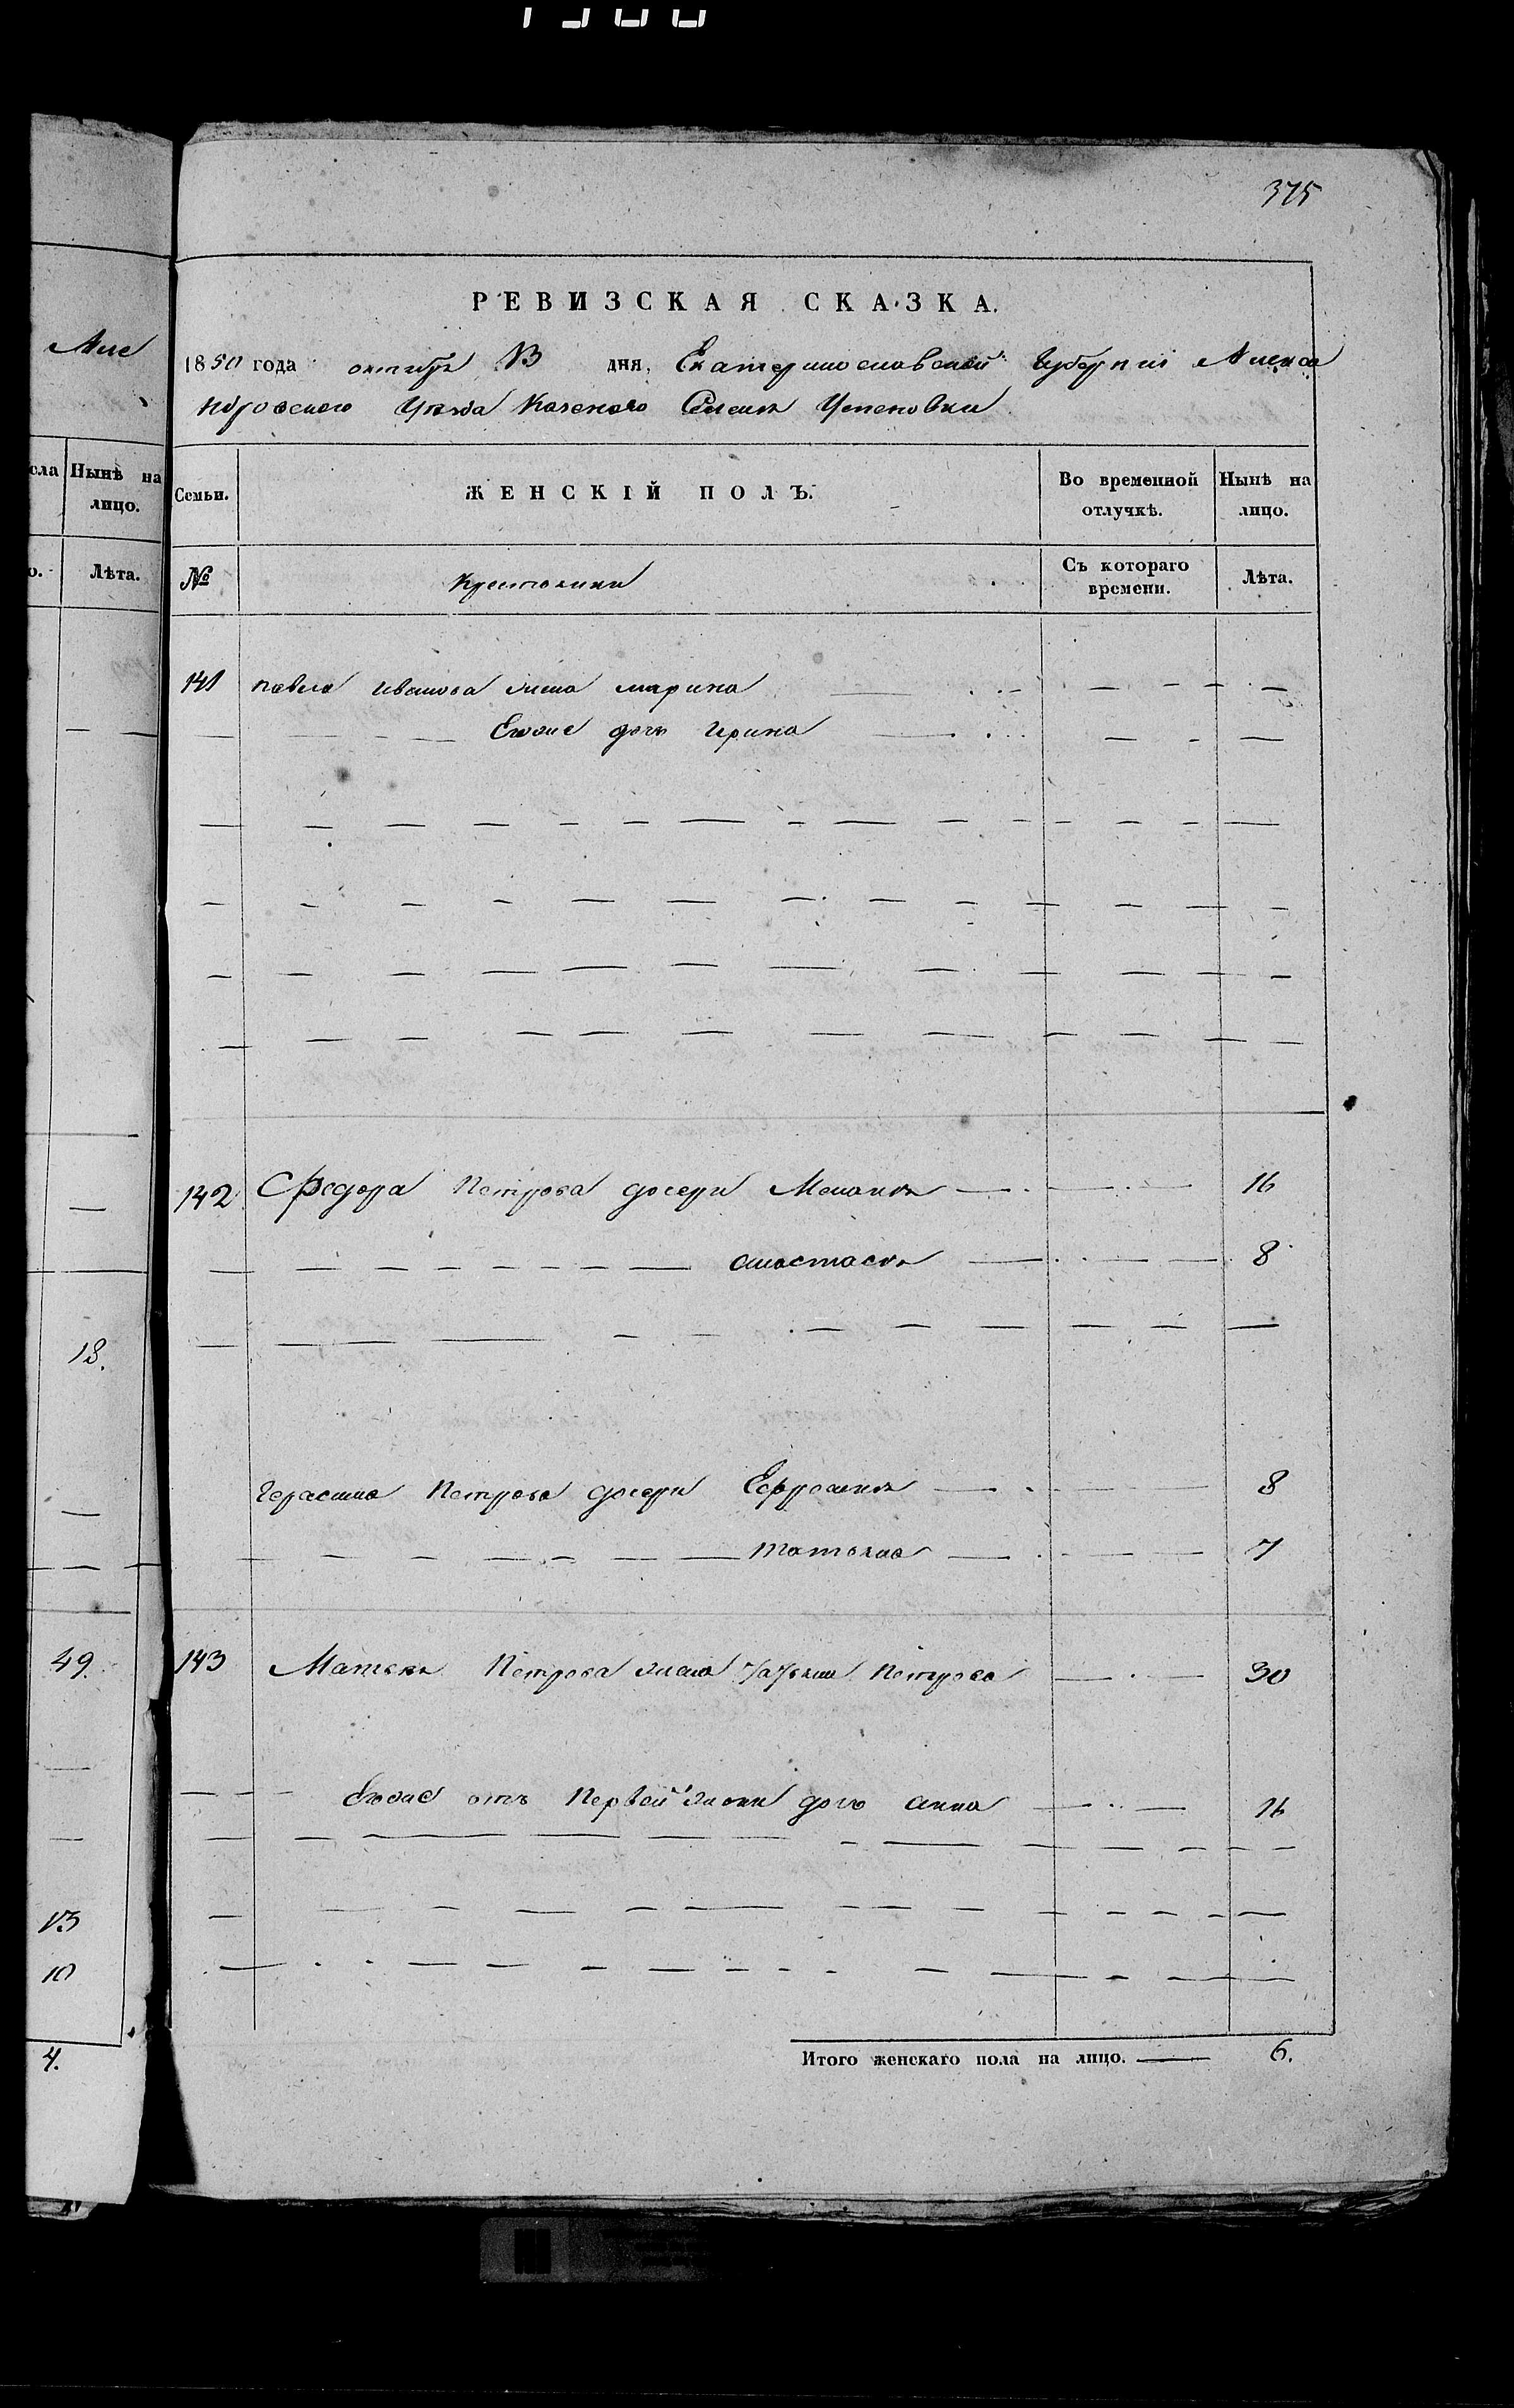 375
РЕВИЗСКАЯ СКАЗКА.
1850 года октября 13 дня, Екатеринославской Губернии Алекса
ндровского Уезда Казеного Селения Успеновки
Але
Нынѣ на лицо.
Лѣта.
18.
49.
13
10
4.
Семьи. ЖЕНСКІЙ ПОЛЪ. Во временной отлучкѣ. Нынѣ на лицо.
№ Крестьянки Съ котораго времени. Лѣта.
141 павла Иванова жена марина
Еговые дочь Ирина
142 Федора Петрова дочери Меланья 16
анастасия 8
Герасима Петрова дочери Ефросинья 8
татьяна 7
143 Матвея Петрова жена Петрова 30
Еговые отъ Первой жены дочь анна 16
Итого женскаго пола на лицо. 6.